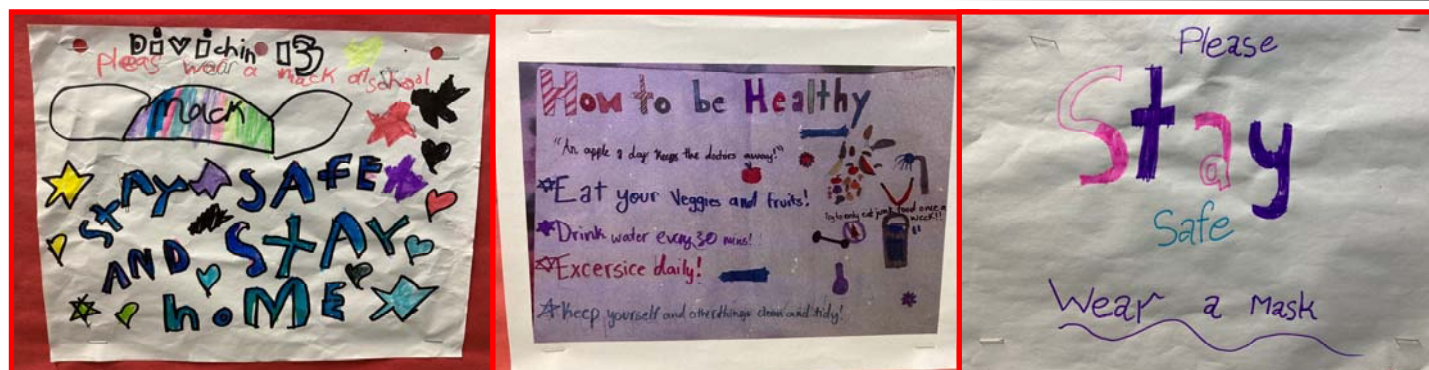 Divichin 13
pleas wear a mack at school
mack
STAY SAFE
AND STAY
hoME
How to be Healthy
"An apple a day keeps the doctors away!"
Eat your Veggies and fruits!
Try to only eat junk food once a
week!!
Drink water every 30 mins!
Excersice daily!
Keep yourself and other things clean and tidy!
Please
Stay
Safe
Wear a Mask